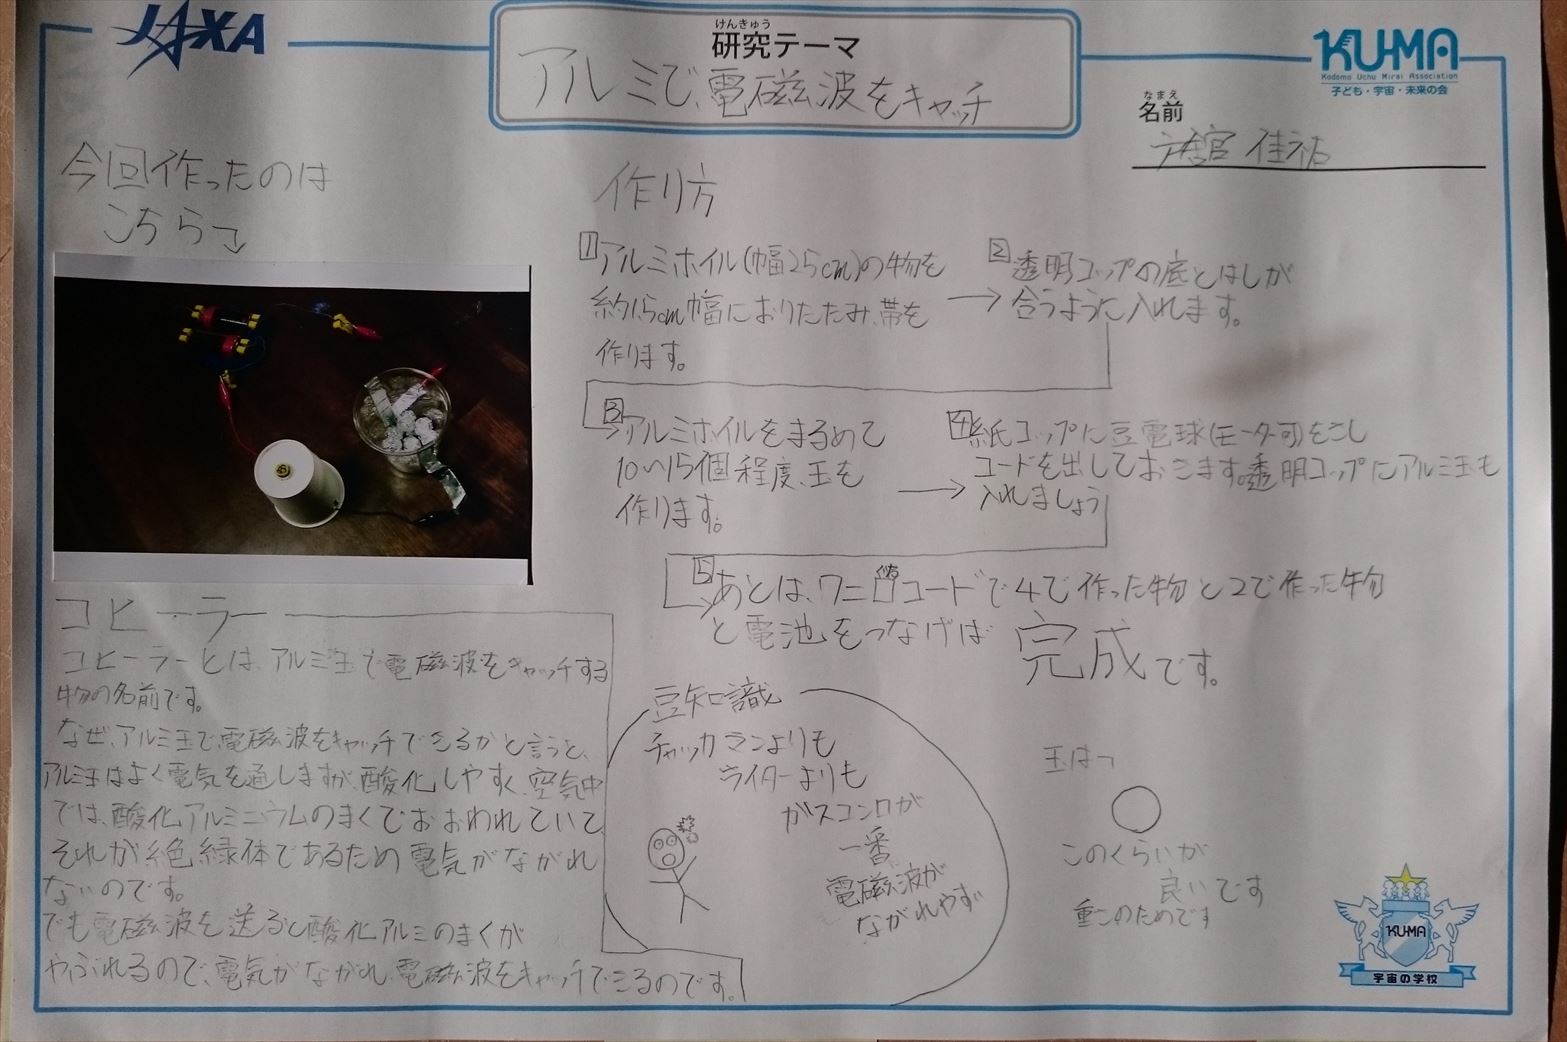 JAXA
けんきゅう
研究テーマ
アルミで、電磁波をキャッチ
KU-MA
Kodomo Uchu Mirai Association
子ども・宇宙・未来の会
なまえ
名前
佳祐
今回作ったのは
こちら
作り方
1 アルミホイル(幅25cm)の物を
約1.5cm幅におりたたみ、帯を
作ります。
2 透明コップの底とはしが
合うように入れます。
3 アルミホイルをまるめて
10〜15個程度、玉を
作ります。
4 紙コップに豆電球(モーター可)をさし
コードを出しておきます。透明コップにアルミ玉も
入れましょう
5 あとは、ワニ口コードで4で作った物と2で作った物
と電池をつなげば 完成です。
コヒーラー
コヒーラーとは、アルミ玉で電磁波をキャッチする
物の名前です。
なぜ、アルミ玉で、電磁波をキャッチできるかと言うと、
アルミ玉はよく電気を通しますが、酸化しやすく、空気中
では、酸化アルミニウムのまくでおおわれていて、
それが絶縁体であるため電気がながれ
ないのです。
でも電磁波を送ると酸化アルミのまくが
やぶれるので、電気がながれ、電磁波をキャッチできるのです。
豆知識
チャッカマンよりも
ライターよりも
ガスコンロが
一番
電磁波が
ながれやすい
玉は
このくらいが
良いです
重さのためです
KU-MA
宇宙の学校